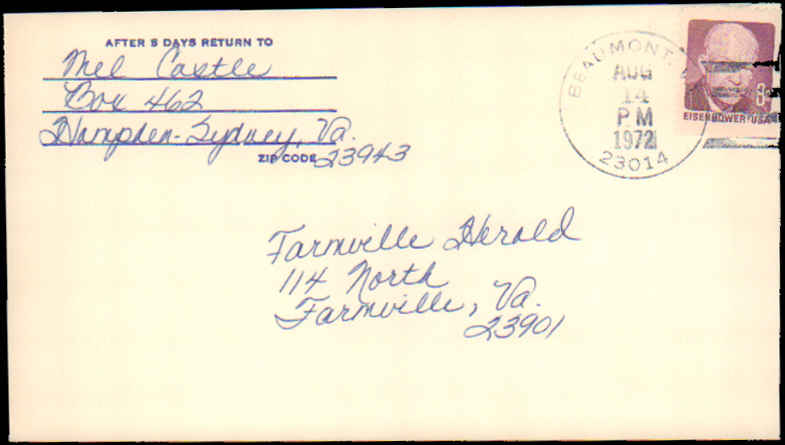 AFTER 5 DAYS RETURN TO
Mel Castle
Box 462
Hampden-Sydney, Va.
ZIP CODE 23943
BEAUMONT,
AUG
14
PM
1972
23014
EISENHOWER·USA
Farmville Herald
114 North
Farmville, Va.
23901